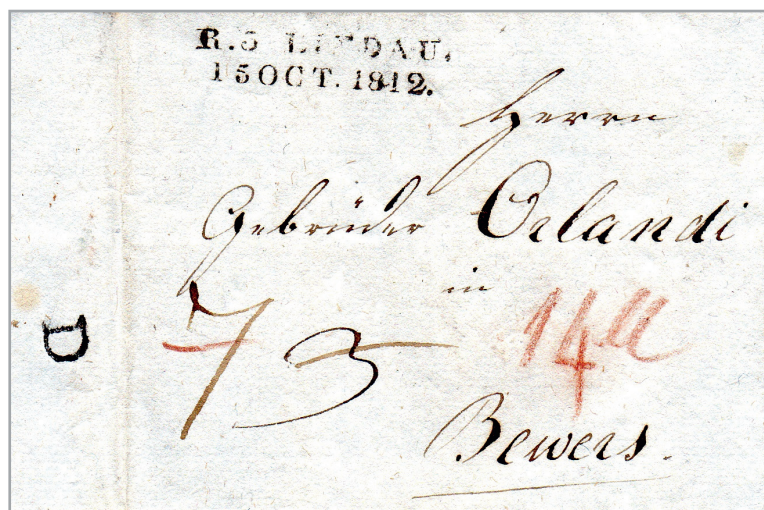 R.3 LINDAU.
15 OCT. 1812.
Herrn
Gebrüder Orlandi
in
7 3
14
Bewers.
D